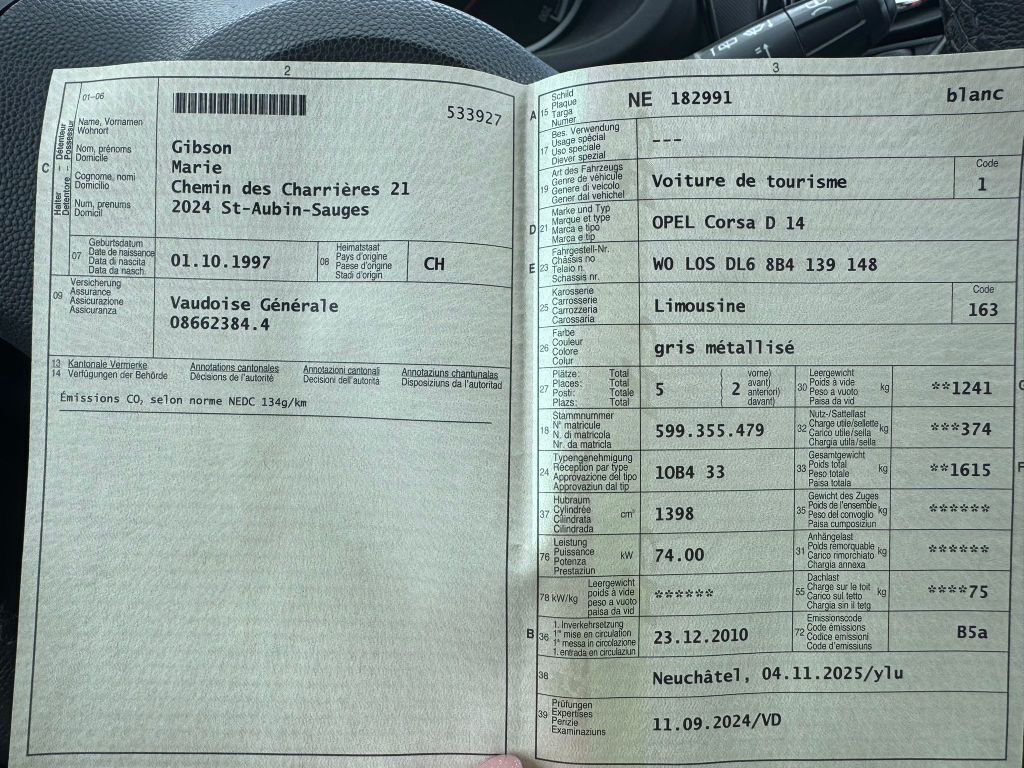 2
01-06
533927
Name, Vornamen
Wohnort
Nom, prénoms
Domicile
Cognome, nomi
Domicilio
Num, prenums
Domicil
C
Halter – Détenteur
Detentore – Possessur
Gibson
Marie
Chemin des Charrières 21
2024 St-Aubin-Sauges
07
Geburtsdatum
Date de naissance
Data di nascita
Data da nasch.
01.10.1997
08
Heimatstaat
Pays d'origine
Paese d'origine
Stadi d'origin
CH
09
Versicherung
Assurance
Assicurazione
Assicuranza
Vaudoise Générale
08662384.4
13 Kantonale Vermerke Annotations cantonales Annotazioni cantonali Annotaziuns chantunalas
14 Verfügungen der Behörde Décisions de l'autorité Decisioni dell'autorità Disposiziuns da l'autoritad
Émissions CO, selon norme NEDC 134g/km
3
A
15
Schild
Plaque
Targa
Numer
NE 182991 blanc
17
Bes. Verwendung
Usage spécial
Uso speciale
Diever spezial
---
19
Art des Fahrzeugs
Genre de véhicule
Genere di veicolo
Gener dal vehichel
Voiture de tourisme
Code
1
D
21
Marke und Typ
Marque et type
Marca e tipo
Marca e tip
OPEL Corsa D 14
E
23
Fahrgestell-Nr.
Châssis no
Telaio n.
Schassis nr.
WO LOS DL6 8B4 139 148
25
Karosserie
Carrosserie
Carrozzeria
Carossaria
Limousine
Code
163
26
Farbe
Couleur
Colore
Colur
gris métallisé
27
Plätze: Total
Places: Total
Posti: Totale
Plazs: Total
5
2
vorne)
avant)
anteriori)
davant)
30
Leergewicht
Poids à vide
Peso a vuoto
Paisa da vid
kg
**1241
18
Stammnummer
N° matricule
N. di matricola
Nr. da matricla
599.355.479
32
Nutz-/Sattellast
Charge utile/sellette
Carico utile/sella
Chargia utila/sella
kg
***374
24
Typengenehmigung
Réception par type
Approvazione del tipo
Approvaziun dal tip
1OB4 33
33
Gesamtgewicht
Poids total
Peso totale
Paisa totala
kg
**1615
F
37
Hubraum
Cylindrée
Cilindrata
Cilindrada
cm³
1398
35
Gewicht des Zuges
Poids de l'ensemble
Peso del convoglio
Paisa cumposiziun
kg
******
76
Leistung
Puissance
Potenza
Prestaziun
kW
74.00
31
Anhängelast
Poids remorquable
Carico rimorchiato
Chargia annexa
kg
******
78 kW/kg
Leergewicht
poids à vide
peso a vuoto
paisa da vid
******
55
Dachlast
Charge sur le toit
Carico sul tetto
Chargia sin il tetg
kg
****75
B
36
1. Inverkehrsetzung
1re mise en circulation
1a messa in circolazione
1. entrada en circulaziun
23.12.2010
72
Emissionscode
Code émissions
Codice emissioni
Code d'emissiuns
B5a
38
Neuchâtel, 04.11.2025/ylu
39
Prüfungen
Expertises
Perizie
Examinaziuns
11.09.2024/VD